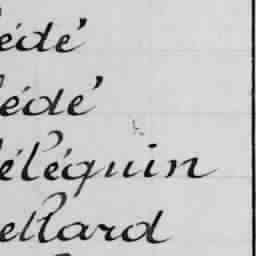 édé
édé
éléquin
ellard